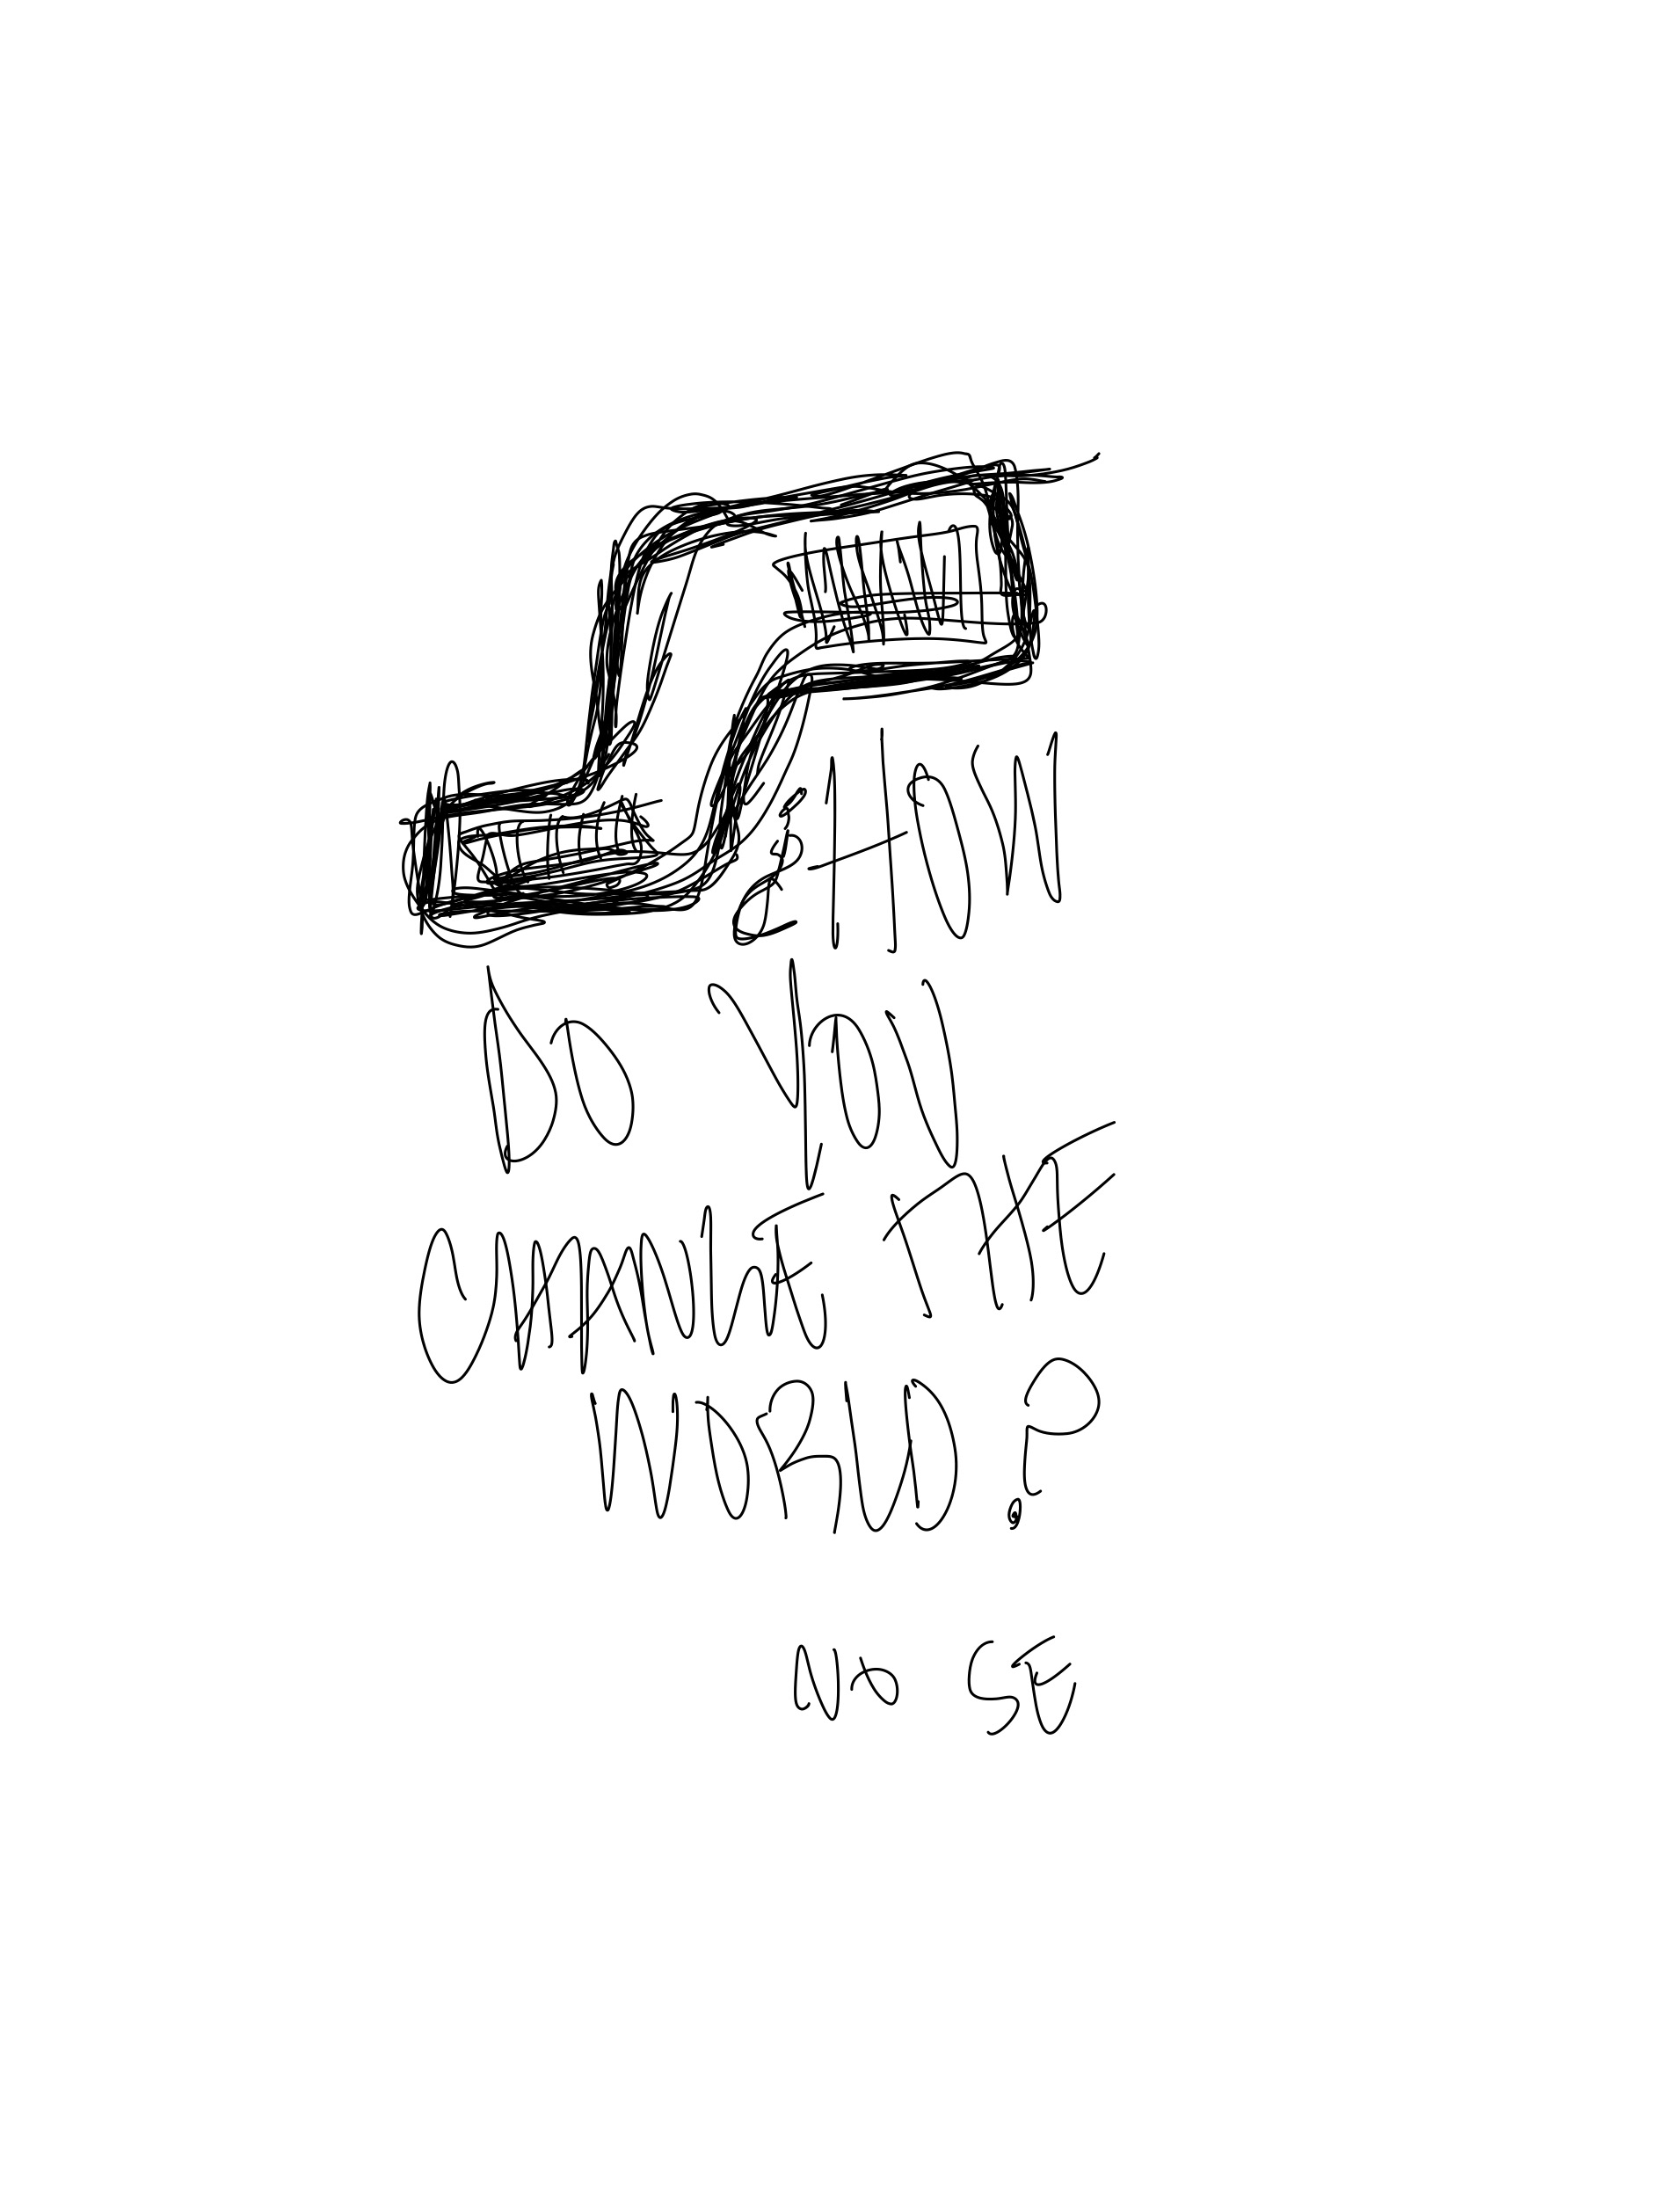 DO YOU
CHANGE THE
WORLD?
NO SE